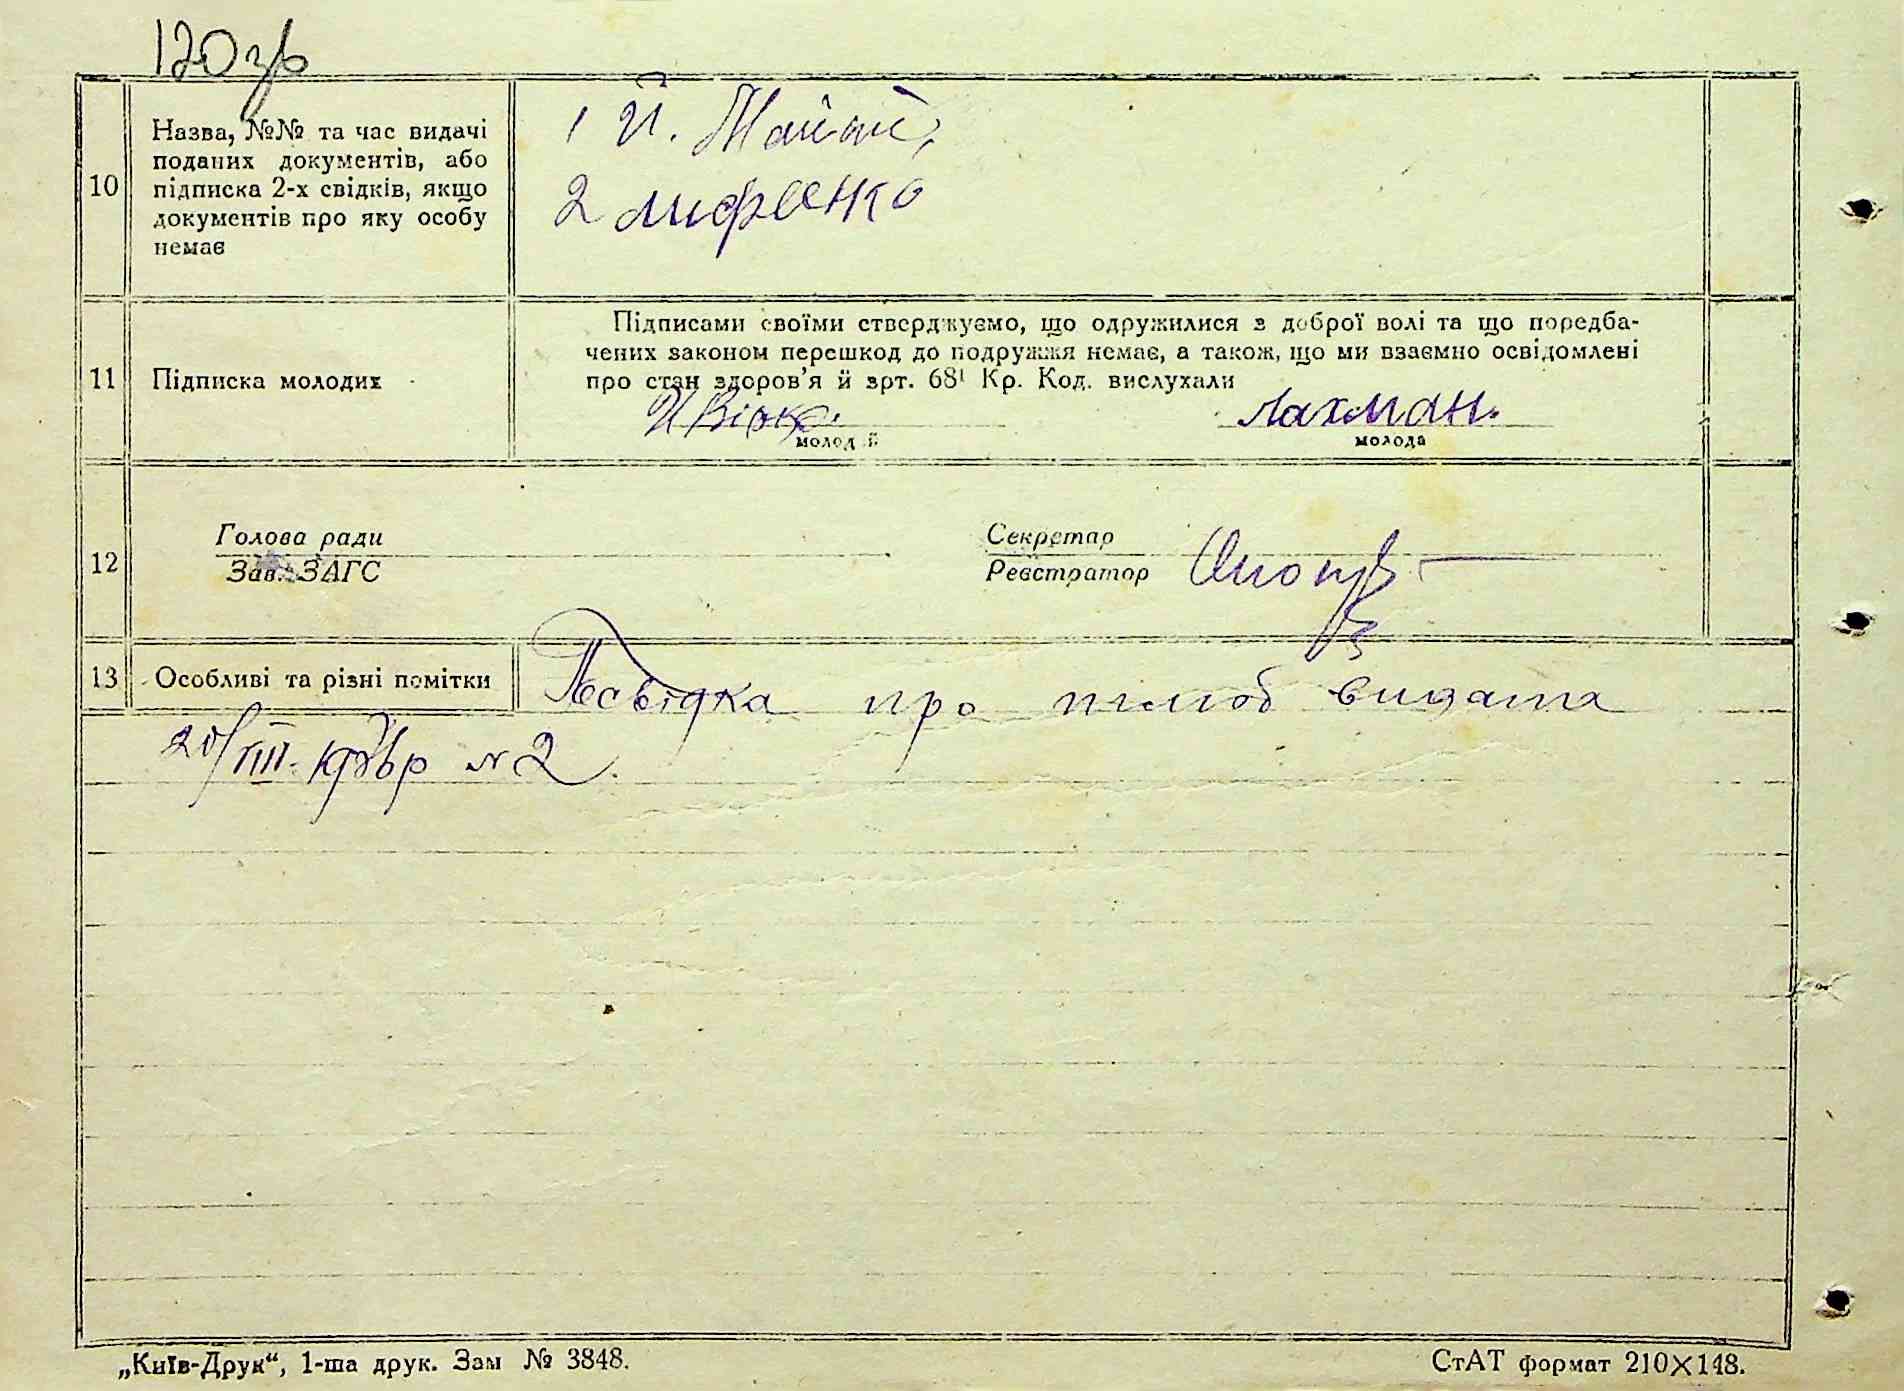 120 зв
10
Назва, №№ та час видачі
поданих документів, або
підписка 2-х свідків, якщо
документів про яку особу
немає
1 Й.
2
11
Підписка молодих
Підписами своїми стверджуємо, що одружилися з доброї волі та що поредба-
чених законом перешкод до подружжя немає, а також, що ми взаємно освідомлені
про стан здоров'я й арт. 68¹ Кр. Код. вислухали
Лахман.
молодий
молода
12
Голова ради
Зав. ЗАГС
Секретар
Реєстратор
13
Особливі та різні помітки
Посвідка про шлюб видата
20/III. №2.
„Київ-Друк“, 1-ша друк. Зам № 3848.
СтАТ формат 210×148.